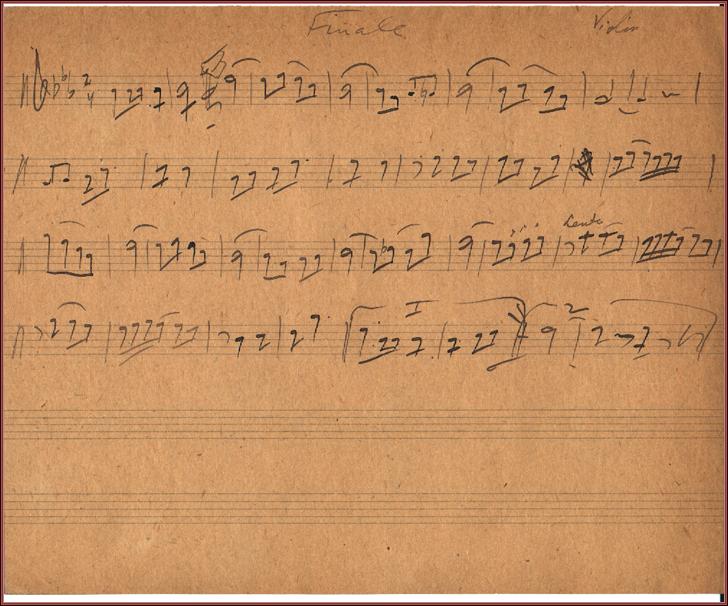 Finale
Violin
2
4
Lento
I
2